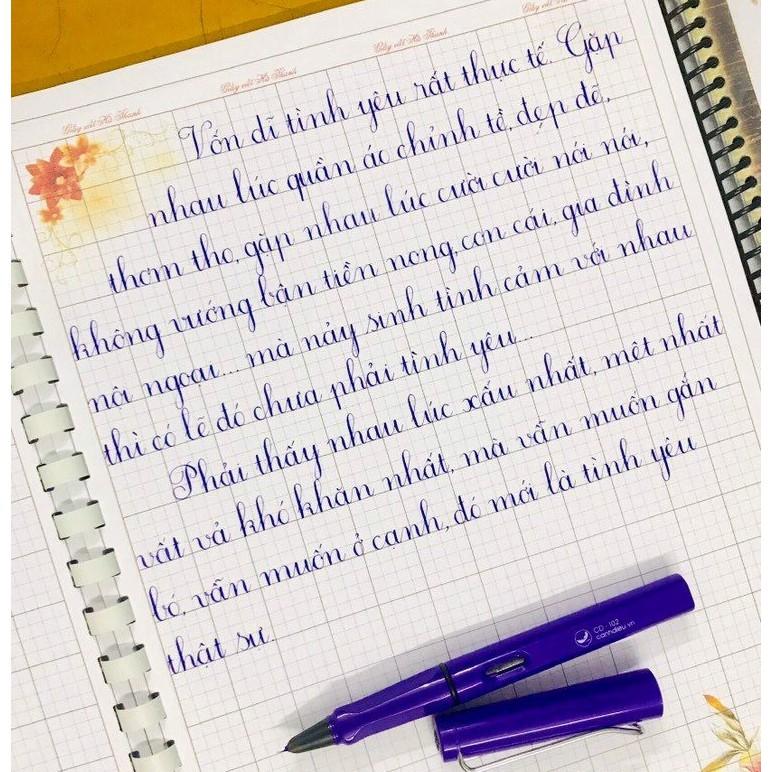 Giấy viết Hà Thanh
Giấy viết Hà Thanh
Giấy viết Hà Thanh
Vốn dĩ tình yêu rất thực tế. Gặp
nhau lúc quần áo chỉnh tề, đẹp đẽ,
thơm tho, gặp nhau lúc cười cười nói nói,
không vướng bận tiền nong, con cái, gia đình
nội ngoại... mà nảy sinh tình cảm với nhau
thì có lẽ đó chưa phải tình yêu...
Phải thấy nhau lúc xấu nhất, mệt nhất
vất vả khó khăn nhất, mà vẫn muốn gắn
bó, vẫn muốn ở cạnh, đó mới là tình yêu
thật sự.
CD - 102
canhdieu.vn